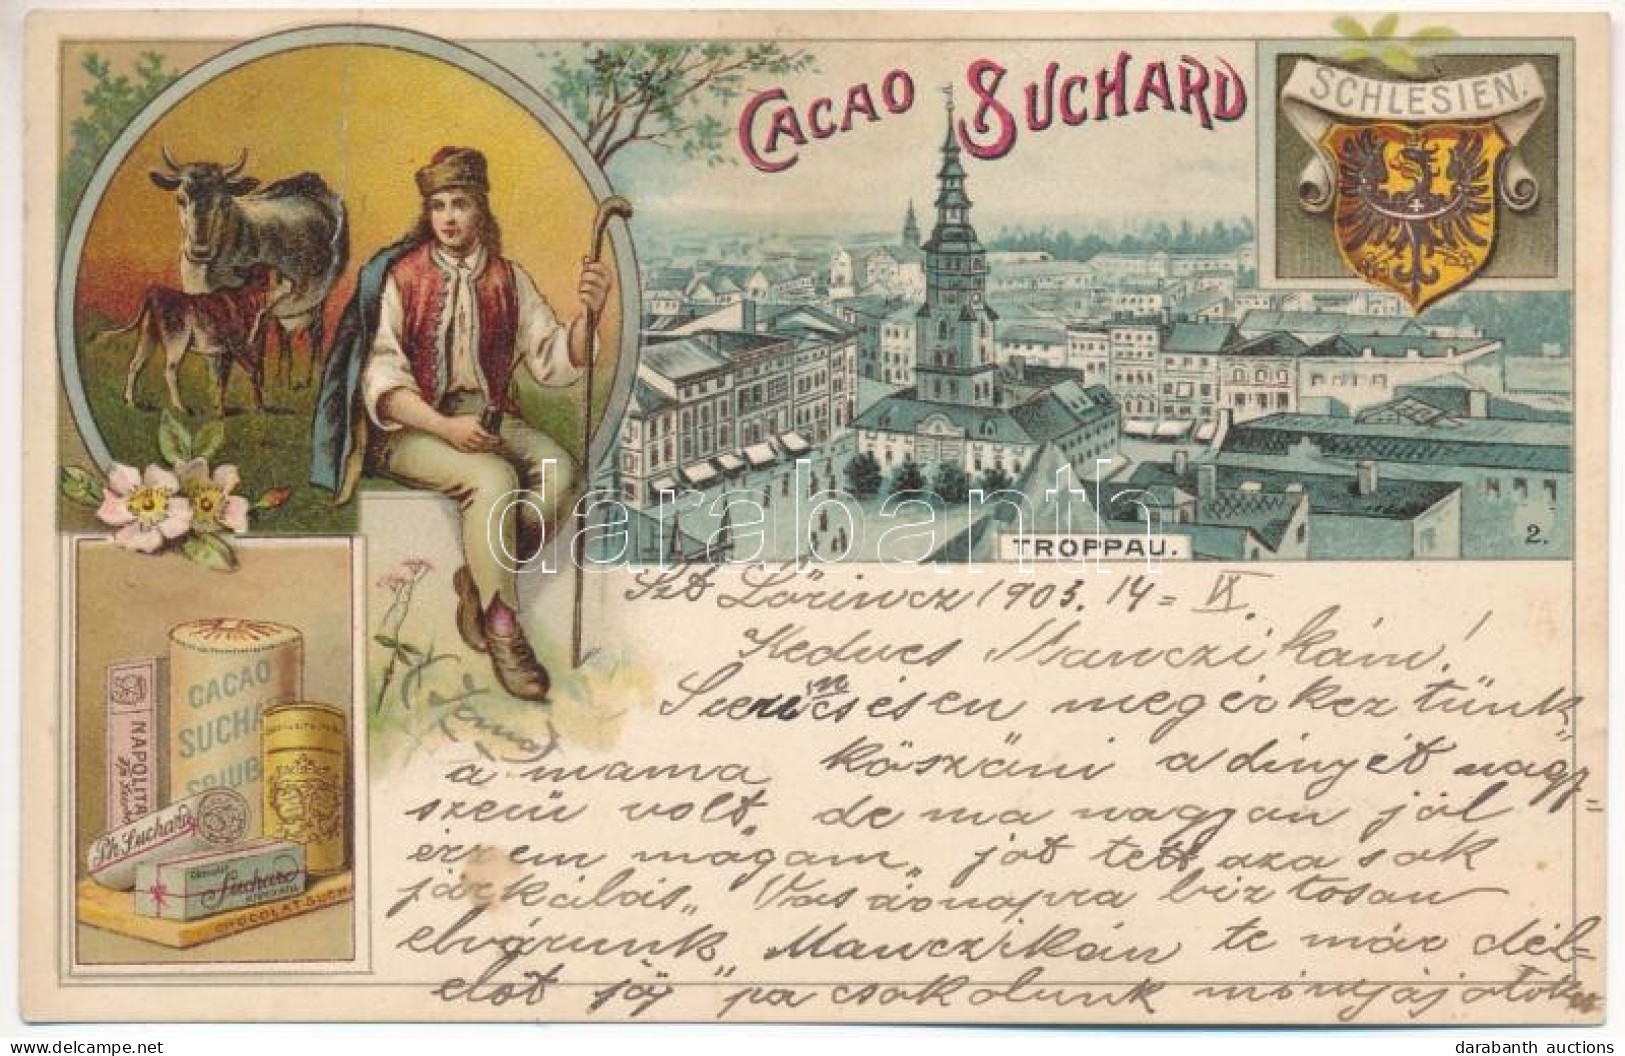 CACAO SUCHARD
SCHLESIEN.
TROPPAU.
2.
CACAO
SUCHA
NAPOLITA
Ph. Suchard
Suchard
CHOCOLAT SUCH
darabanth
Szt Lőrincz 1903. 14 = IX.
Kedves Manczikám!
Szerencsésen megérkeztünk
a mama köszöni a dinyét nagy=
szerü volt, de ma nagyan jól
érzem magam, jót tett az a sok
járkálás„ Vasárnapra biztosan
elvárunk Manczikám te már dél=
előt jöj" pa csokolunk
www.darabanth.com
darabanth auctions